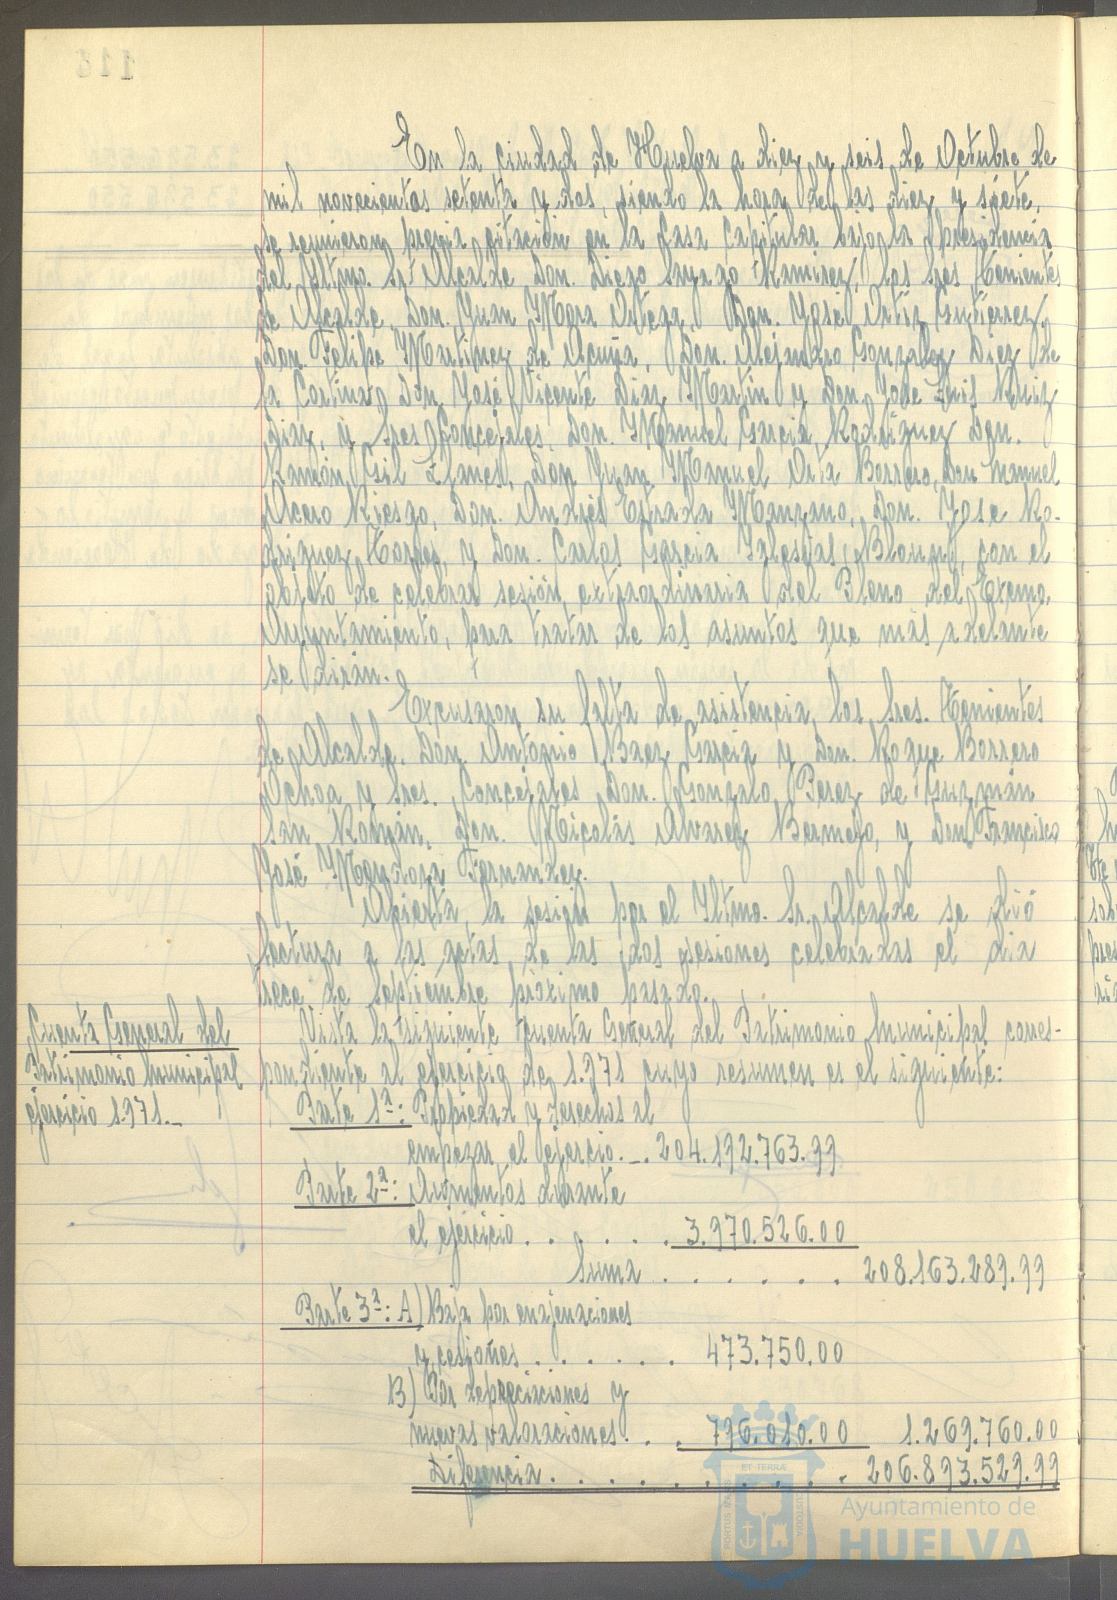 En la ciudad de Huelva a diez y seis de Octubre de
mil novecientos setenta y dos, siendo la hora de las diez y siete,
se reunieron previa citación en la Casa Capitular bajo la presidencia
del Iltmo. Sr. Alcalde Don. Diego Sayago Ramirez, los Sres Tenientes
de Alcalde, Don. Juan Mora Ortega, Don. José Ortiz Gutierrez,
Don. Felipe Martinez de Acuña, Don. Alejandro Gonzalez Diez de
la Cortina, Don José Vicente Diaz Martin y Don Jose Luis Ruiz
Diaz, y Sres Concejales, Don. Manuel Garcia Rodriguez Don.
Ramón Gil Llanes, Don Juan Manuel Orta Borrero, Don Manuel
Acero Riesgo, Don. Andrés Estrada Manzano, Don. Jose Ro-
driguez Torres, y Don. Carlos Garcia Iglesias Blount, con el
objeto de celebrar sesión extraordinaria del Pleno del Excmo.
Ayuntamiento, para tratar de los asuntos que más adelante
se dirán.
Excusaron su falta de asistencia, los Sres. Tenientes
de Alcalde, Don Antonio Baez Garcia y Don. Roque Borrero
Ochoa y Sres. Concejales Don. Gonzalo Perez de Guzmán
San Román, Don. Nicolás Alvarez Bermejo, y Don Francisco
José Fernandez.
Abierta la sesión por el Iltmo. Sr. Alcalde se dió
lectura a las actas de las dos sesiones celebradas el dia
trece de Septiembre próximo pasado.
Cuenta General del
Patrimonio Municipal
ejercicio 1.971.-
Vista la siguiente Cuenta General del Patrimonio Municipal corres-
pondiente al ejercicio de 1.971 cuyo resumen es el siguiente:
Parte 1ª: Propiedad y derechos al
empezar el ejercio.-. 204.192.763.99
Parte 2ª: Aumentos durante
el ejercicio . . . . . . 3.970.526.00
Suma . . . . . . 208.163.289.99
Parte 3ª: A) Baja por enajenaciones
y cesiones . . . . . . 473.750.00
B) Por depreciaciones y
nuevas valoraciones . . . 796.010.00 1.269.760.00
Diferencia . . . . . . . . . . 206.893.529.99
PORTUS MARIS
ET TERRÆ
CUSTODIA
Ayuntamiento de
HUELVA